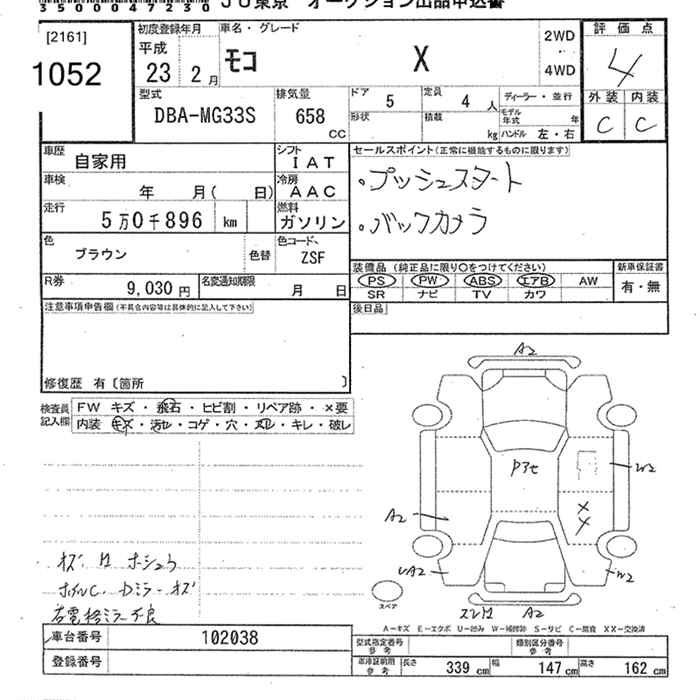 350004723０
ＪＵ東京　オークション出品申込書
[2161]
1052
初度登録年月
平成
23 2 月
車名・グレード
ﾓｺ X
2WD
・
4WD
評価点
4
外装 内装
C C
型式
DBA-MG33S
排気量
658
CC
ドア
5
形状
定員
4 人
積載
kg
ディーラー・並行
モデル年式 年
ハンドル 左・右
車歴
自家用
シフト
I A T
セールスポイント(正常に機能するものに限ります)
。プッシュスタート
。バックカメラ
車検
年 月( 日)
冷房
A A C
走行
5万0千896 km
燃料
ガソリン
色
ブラウン
色替
色コード
ZSF
R券
9,030 円
名変通知期限
月 日
装備品 (純正品に限り○をつけてください)
PS PW ABS エアB AW
SR ナビ TV カワ
新車保証書
有・無
注意事項申告欄(不具合内容等は具体的に記入して下さい)
後日品
修復歴 有〔箇所 〕
検査員記入欄
FW キズ・飛石・ヒビ割・リペア跡・×要
内装 キズ・汚レ・コゲ・穴・スレ・キレ・破レ
A2
Pアセ
W2
×
×
A2
UA2
W2
スペア
A2
ホイルC. Dミラーキズ
右電格ミラー不良
A-キズ E-エクボ U-凹み W-補修跡 S-サビ C-腐食 XX-交換済
車台番号 102038
型式指定番号
参考
類別区分番号
参考
登録番号
車庫証明用
参考
長さ 339 cm 幅 147 cm 高さ 162 cm